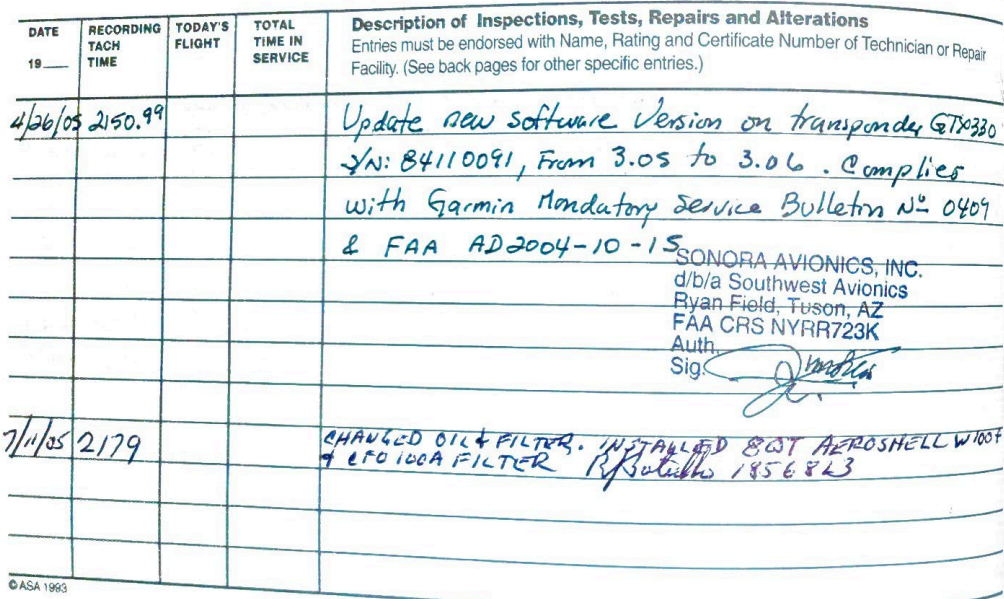 DATE
19
RECORDING
TACH
TIME
TODAY'S
FLIGHT
TOTAL
TIME IN
SERVICE
Description of Inspections, Tests, Repairs and Alterations
Entries must be endorsed with Name, Rating and Certificate Number of Technician or Repair
Facility. (See back pages for other specific entries.)
4/26/05 2150.99 Update new software Version on transponder GTX330
S/N: 84110091, From 3.05 to 3.06. Complies
with Garmin Mondatory Service Bulletin Nº 0409
& FAA AD 2004-10-15
SONORA AVIONICS, INC.
d/b/a Southwest Avionics
Ryan Field, Tuson, AZ
FAA CRS NYRR723K
Auth.
Sig.
7/11/05 2179 CHANGED OIL & FILTER. INSTALLED 8QT AEROSHELL
& CFO 100A FILTER
©ASA 1993